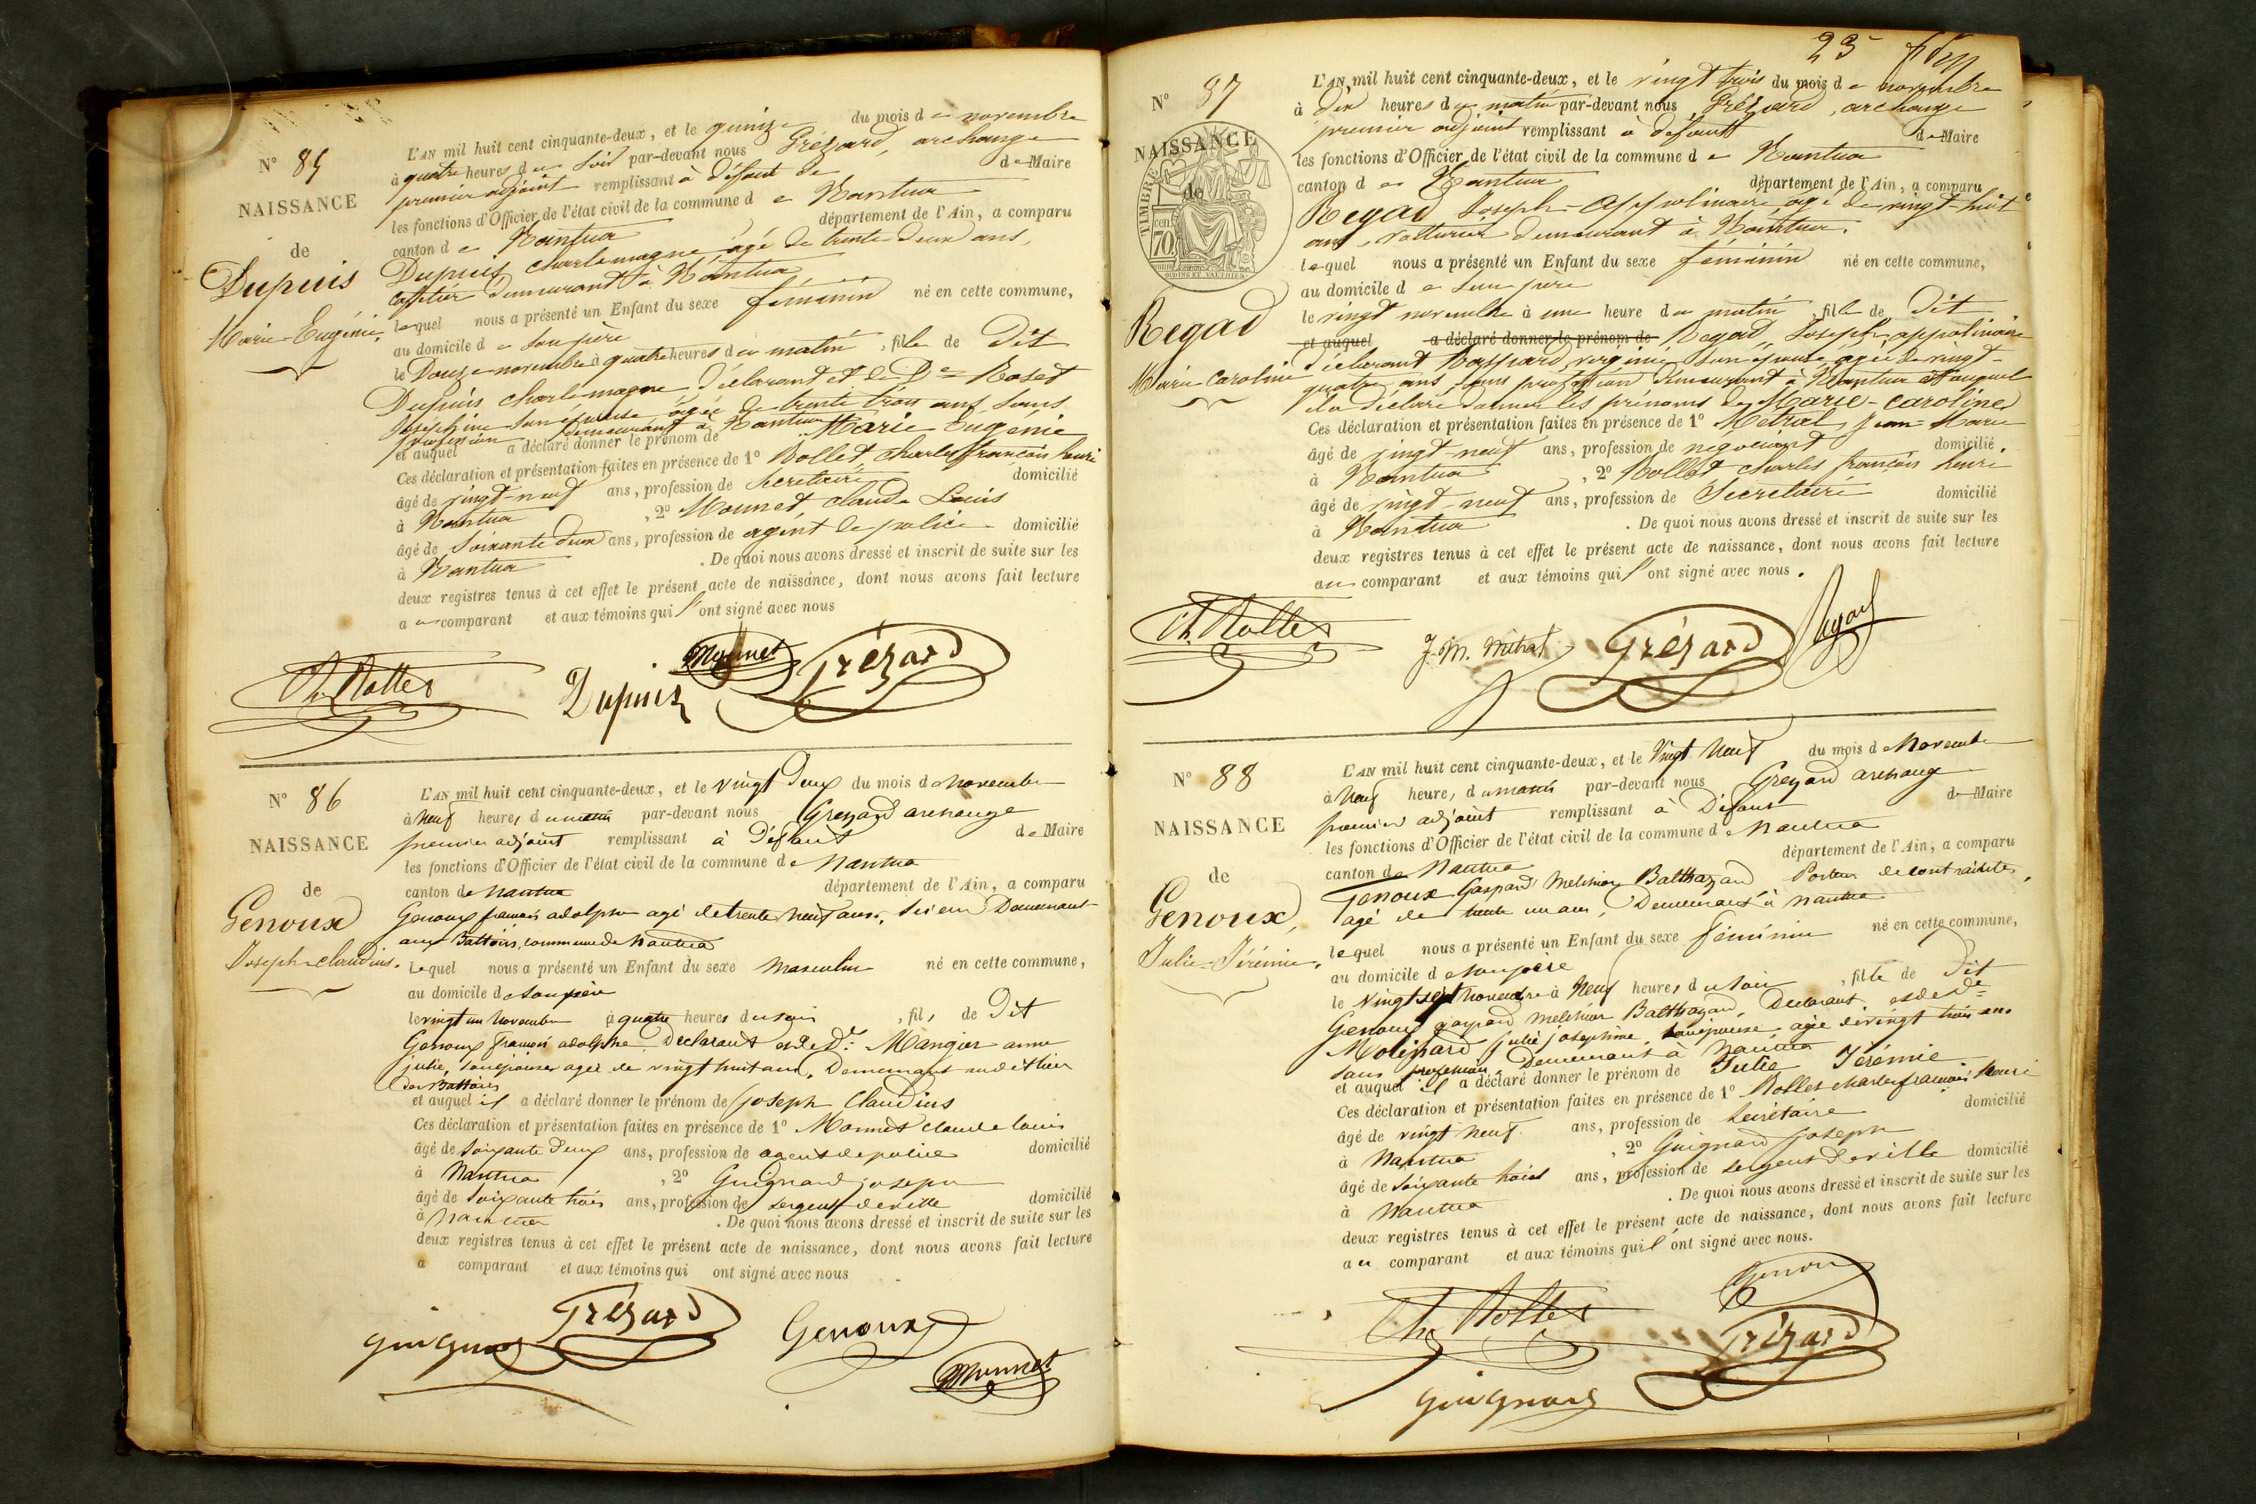 N° 85
NAISSANCE
de
Dupuis
Marie-Eugénie.
L'AN mil huit cent cinquante-deux, et le quinze du mois de novembre
à quatre heures du soir par-devant nous Grézard, archange
premier adjoint remplissant à défaut de de Maire
les fonctions d'Officier de l'état civil de la commune de Nantua
canton de Nantua département de l'Ain, a comparu
Dupuis charlemagne, âgé de trente deux ans,
demeurant à Nantua
lequel nous a présenté un Enfant du sexe féminin né en cette commune,
au domicile de son père
le Douze novembre à quatre heures du matin, fille de Dit
Dupuis charlemagne déclarant et de De Roset
Joséphine son épouse âgée de trente trois ans, sans
profession demeurant à Nantua
et auquel a déclaré donner le prénom de Marie Eugénie
Ces déclaration et présentation faites en présence de 1° Rollet charles françois henri
âgé de vingt-neuf ans, profession de Secrétaire domicilié
à Nantua, 2° Monnet claude Louis
âgé de Soixante deux ans, profession de agent de police domicilié
à Nantua. De quoi nous avons dressé et inscrit de suite sur les
deux registres tenus à cet effet le présent acte de naissance, dont nous avons fait lecture
au comparant et aux témoins qui l'ont signé avec nous
Ch. Rollet
Dupuis
Monnet
Grézard
N° 86
NAISSANCE
de
Genoux
Joseph-claudius.
L'AN mil huit cent cinquante-deux, et le vingt Deux du mois de Novembre
à Neuf heures du matin par-devant nous Grezard archange
premier adjoint remplissant à Défaut de Maire
les fonctions d'Officier de l'état civil de la commune de Nantua
canton de Nantua département de l'Ain, a comparu
Genoux francois adolphe agé de trente Neuf ans, Demeurant
aux Battoirs, commune de Nantua
Lequel nous a présenté un Enfant du sexe Masculin né en cette commune,
au domicile de Son père
le vingt un Novembre à quatre heures du soir, fils de Dit
Genoux francois adolphe Declarant et de De Mangier anne
julie, son épouse agée de vingt huit ans, Demeurant au dit lieu
des Battoirs
et auquel il a déclaré donner le prénom de Joseph Claudius
Ces déclaration et présentation faites en présence de 1° Monnet claude louis
âgé de Soixante Deux ans, profession de agent de police domicilié
à Nantua, 2° Guignard joseph
âgé de Soixante trois ans, profession de sergent de ville domicilié
à Nantua. De quoi nous avons dressé et inscrit de suite sur les
deux registres tenus à cet effet le présent acte de naissance, dont nous avons fait lecture
a comparant et aux témoins qui ont signé avec nous
Guignard
Grézard
Genoux
Monnet
23
N° 87
NAISSANCE
de
TIMBRE
70
Regad
Marie caroline
L'AN mil huit cent cinquante-deux, et le vingt trois du mois de novembre
à Dix heures du matin par-devant nous Grézard, archange
premier adjoint remplissant à défaut de Maire
les fonctions d'Officier de l'état civil de la commune de Nantua
canton de Nantua département de l'Ain, a comparu
Regad Joseph-Appolinaire âgé de vingt-huit
ans, voiturier demeurant à Nantua.
lequel nous a présenté un Enfant du sexe féminin né en cette commune,
au domicile de Son père
le vingt novembre à une heure du matin, fille de Dit
et auquel a déclaré donner le prénom de Regad, Joseph appolinaire
déclarant virginie son épouse âgée de vingt-
quatre ans, sans profession demeurant à Nantua et auquel
il a déclaré donner les prénoms de Marie-caroline
Ces déclaration et présentation faites en présence de 1° Métral, Jean-Marie
âgé de vingt-neuf ans, profession de négociant domicilié.
à Nantua, 2° Rollet charles françois henri
âgé de vingt-neuf ans, profession de Secrétaire domicilié
à Nantua. De quoi nous avons dressé et inscrit de suite sur les
deux registres tenus à cet effet le présent acte de naissance, dont nous avons fait lecture
au comparant et aux témoins qui l'ont signé avec nous.
Ch. Rollet
J. M. Métral
Grézard
Regad
N° 88
NAISSANCE
de
Genoux,
Julie-Jérémie.
L'AN mil huit cent cinquante-deux, et le Vingt Neuf du mois de Novembre
à Neuf heure, du matin par-devant nous Grezard archange
premier adjoint remplissant à Défaut de Maire
les fonctions d'Officier de l'état civil de la commune de Nantua
canton de Nantua département de l'Ain, a comparu
Genoux Gaspard Melchior Balthazard Porteur de contraintes,
agé de trente un ans, Demeurant à Nantua
lequel nous a présenté un Enfant du sexe féminin né en cette commune,
au domicile de son père
le Vingt sept novembre à Neuf heures du soir, fille de Dit
Genoux gaspard Melchior Balthazard, Declarant et de De
Molinard Julie josephine, son épouse, agée de vingt trois ans
sans profession, Demeurant à Nantua
et auquel il a déclaré donner le prénom de Julie Jérémie
Ces déclaration et présentation faites en présence de 1° Rollet charles francois henri
âgé de vingt Neuf ans, profession de Secrétaire domicilié
à Nantua, 2° Guignard joseph
âgé de Soixante trois ans, profession de sergent de ville domicilié
à Nantua. De quoi nous avons dressé et inscrit de suite sur les
deux registres tenus à cet effet le présent acte de naissance, dont nous avons fait lecture
au comparant et aux témoins qui l'ont signé avec nous.
Ch. Rollet
Genoux
Grézard
Guignard